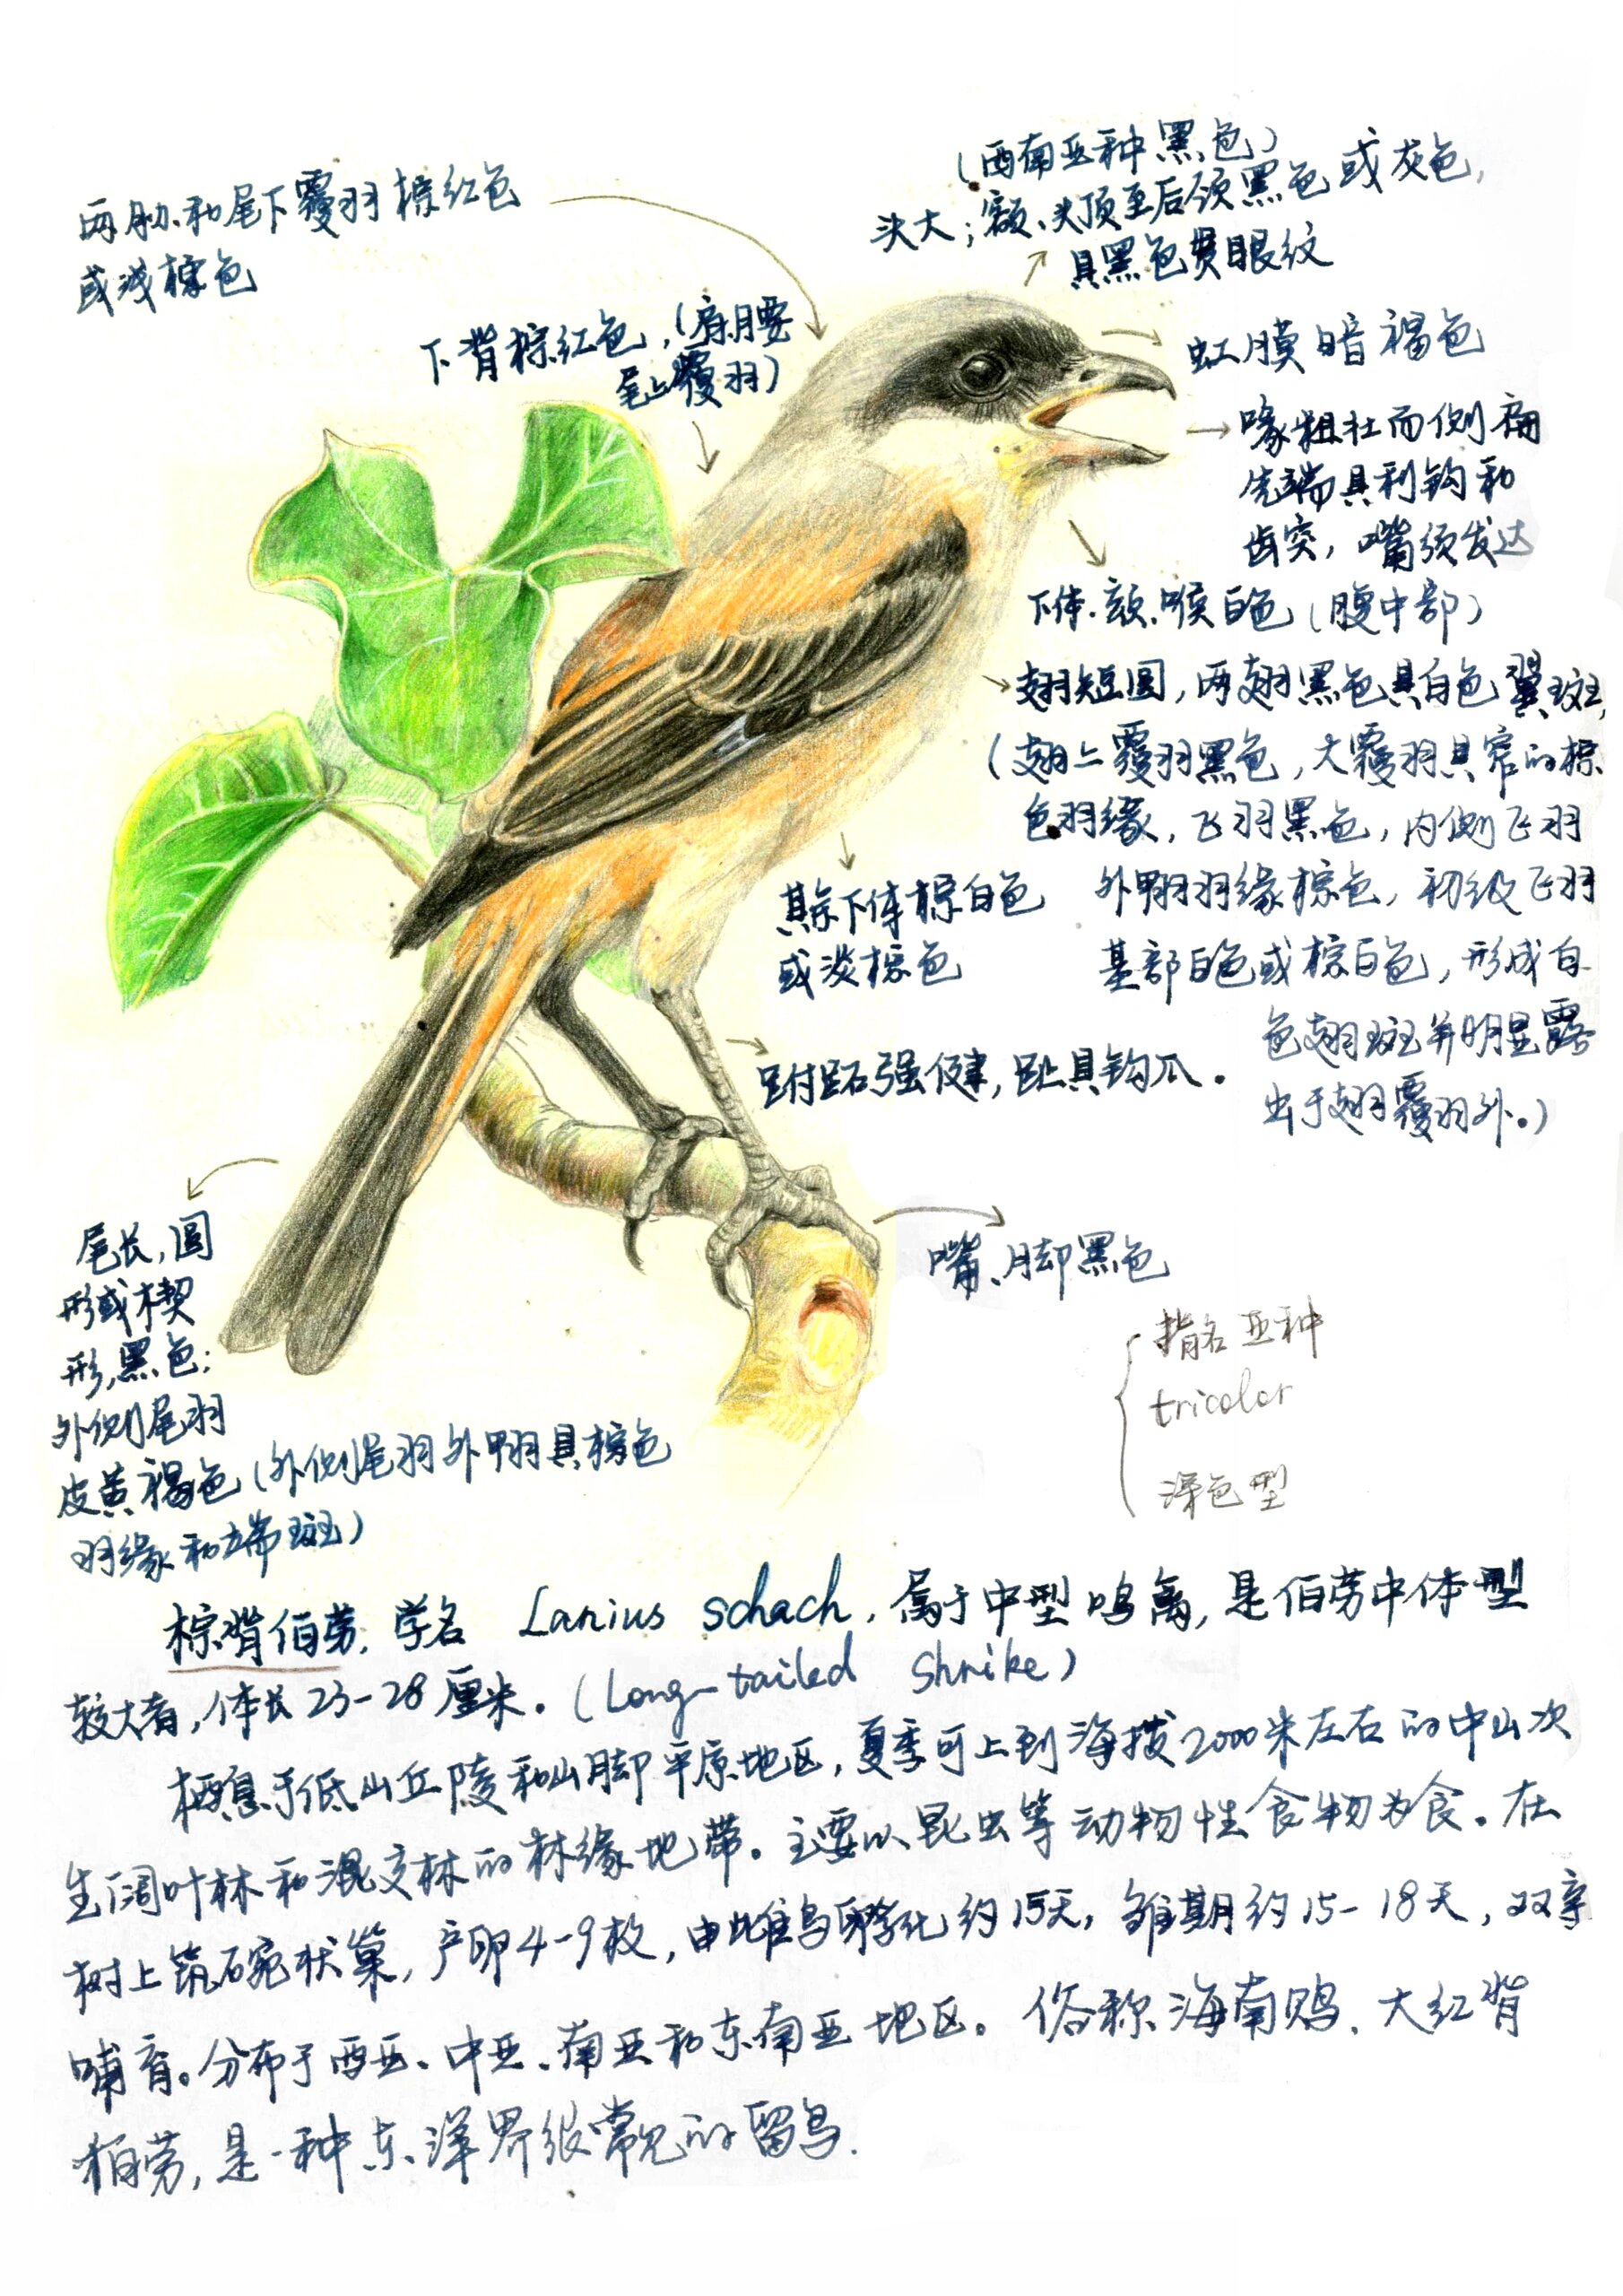 (西南亚种黑色)
头大；额、头顶至后颈黑色或灰色，
具黑色贯眼纹
两胁和尾下覆羽棕红色
或浅棕色
下背棕红色，(肩腰
尾上覆羽)
虹膜暗褐色
喙粗壮而侧扁
先端具利钩和
齿突，嘴须发达
下体、颏、喉白色(腹中部)
翅短圆，两翅黑色具白色翼斑，
(翅上覆羽黑色，大覆羽具窄的棕
色羽缘，飞羽黑色，内侧飞羽
外翈羽缘棕色，初级飞羽
基部白色或棕白色，形成白
色翅斑并明显露
出于翅覆羽外。)
其余下体棕白色
或淡棕色
跗跖强健，趾具钩爪。
嘴、脚黑色
尾长，圆
形或楔
形，黑色；
外侧尾羽
皮黄褐色(外侧尾羽外翈具棕色
羽缘和端斑)
指名亚种
tricolor
深色型
棕背伯劳，学名 Lanius schach，属于中型鸣禽，是伯劳中体型
较大者，体长23-28厘米。(Long-tailed Shrike)
栖息于低山丘陵和山脚平原地区，夏季可上到海拔2000米左右的中山次
生阔叶林和混交林的林缘地带。主要以昆虫等动物性食物为食。在
树上筑碗状巢，产卵4-9枚，由雌鸟孵化约15天，雏期约15-18天，双亲
哺育。分布于西亚、中亚、南亚和东南亚地区。俗称海南鵙、大红背
伯劳，是一种东洋界很常见的留鸟.